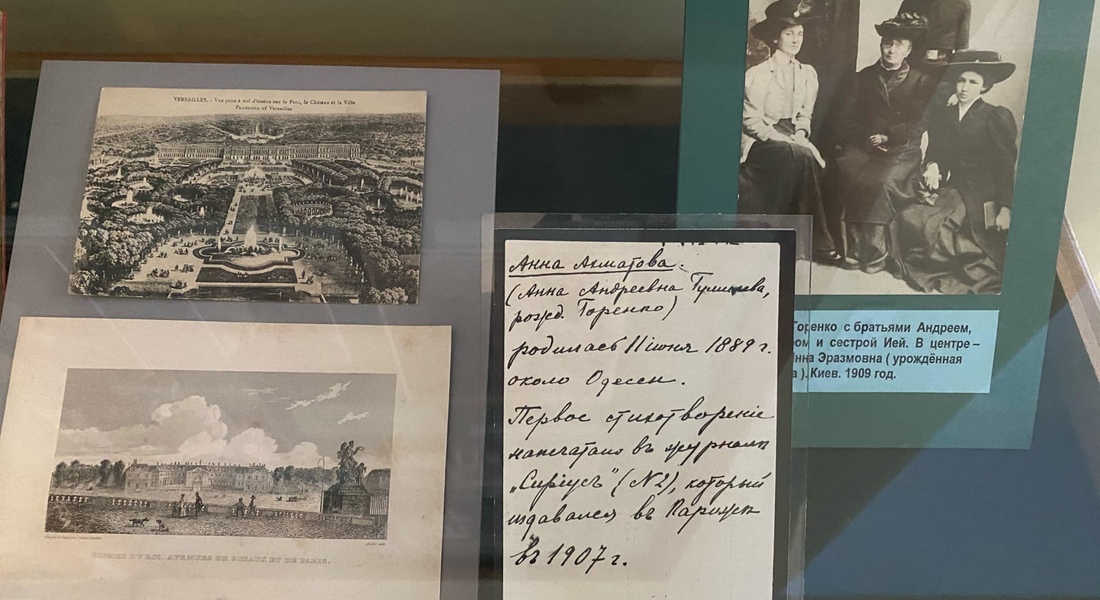 VERSAILLES. - Vue prise à vol d'oiseau sur le Parc, le Château et la Ville
Panorama of Versailles
ECURIES DU ROI, AVENUES DE SCEAUX ET DE PARIS.
Анна Ахматова.
(Анна Андреевна Гумилева,
рожд. Горенко)
родилась 11 іюня 1889 г.
около Одессы.
Первое стихотвореніе
напечатано въ журналѣ
„Сиріусъ" (№2), который
издавался въ Парижѣ
въ 1907 г.
Горенко с братьями Андреем,
и сестрой Ией. В центре –
Эразмовна ( урождённая
). Киев. 1909 год.